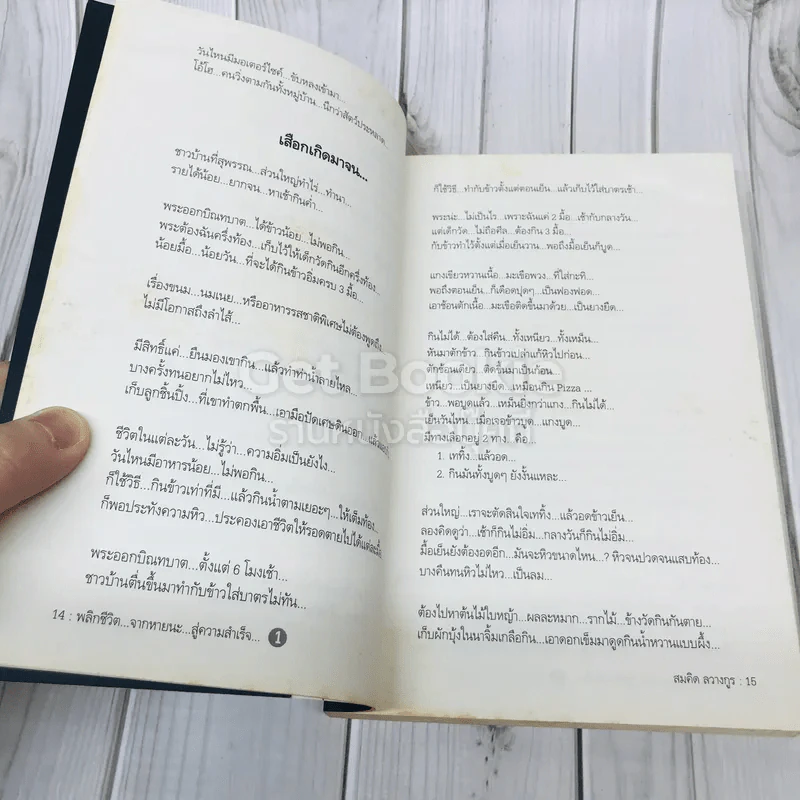 วันไหนมีมอเตอร์ไซค์...ขับหลงเข้ามา...
โอ้โฮ...คนวิ่งตามกันทั้งหมู่บ้าน...นึกว่าสัตว์ประหลาด...
เสือกเกิดมาจน...
ชาวบ้านที่สุพรรณ...ส่วนใหญ่ทำไร่...ทำนา...
รายได้น้อย...ยากจน...หาเช้ากินค่ำ...
พระออกบิณฑบาต...ได้ข้าวน้อย...ไม่พอกิน...
พระต้องฉันครึ่งท้อง...เก็บไว้ให้เด็กวัดกินอีกครึ่งท้อง...
น้อยมื้อ...น้อยวัน...ที่จะได้กินข้าวอิ่มครบ 3 มื้อ...
เรื่องขนม...นมเนย...หรืออาหารรสชาติพิเศษไม่ต้องพูดถึง...
ไม่มีโอกาสถึงลำไส้...
มีสิทธิ์แค่...ยืนมองเขากิน...แล้วทำท่าน้ำลายไหล...
บางครั้งทนอยากไม่ไหว...
เก็บลูกชิ้นปิ้ง...ที่เขาทำตกพื้น...เอามือปัดเศษดินออก...
ชีวิตในแต่ละวัน...ไม่รู้ว่า...ความอิ่มเป็นยังไง...
วันไหนมีอาหารน้อย...ไม่พอกิน...
ก็ใช้วิธี...กินข้าวเท่าที่มี...แล้วกินน้ำตามเยอะๆ...ให้เต็มท้อง...
ก็พอประทังความหิว...ประคองเอาชีวิตให้รอดตายไปได้แต่ละมื้อ
พระออกบิณฑบาต...ตั้งแต่ 6 โมงเช้า...
ชาวบ้านตื่นขึ้นมาทำกับข้าวใส่บาตรไม่ทัน...
14 : พลิกชีวิต...จากหายนะ...สู่ความสำเร็จ... 1
ก็ใช้วิธี...ทำกับข้าวตั้งแต่ตอนเย็น...แล้วเก็บไว้ใส่บาตรเช้า...
พระน่ะ...ไม่เป็นไร...เพราะฉันแค่ 2 มื้อ...เช้ากับกลางวัน...
แต่เด็กวัด...ไม่ถือศีล...ต้องกิน 3 มื้อ...
กับข้าวทำไว้ตั้งแต่เมื่อเย็นวาน...พอถึงมื้อเย็นก็บูด...
แกงเขียวหวานเนื้อ...มะเขือพวง...ที่ใส่กะทิ...
พอถึงตอนเย็น...ก็เดือดปุดๆ...เป็นฟองฟอด...
เอาช้อนตักเนื้อ...มะเขือติดขึ้นมาด้วย...เป็นยางยืด...
กินไม่ได้...ต้องใส่คืน...ทั้งเหนียว...ทั้งเหม็น...
หันมาตักข้าว...กินข้าวเปล่าแก้หิวไปก่อน...
ตักช้อนเดียว...ติดขึ้นมาเป็นก้อน...
เหนียว...เป็นยางยืด...เหมือนกิน Pizza ...
ข้าว...พอบูดแล้ว...เหม็นยิ่งกว่าแกง...กินไม่ได้...
เย็นวันไหน...เมื่อเจอข้าวบูด...แกงบูด...
มีทางเลือกอยู่ 2 ทาง...คือ...
1. เททิ้ง...แล้วอด...
2. กินมันทั้งบูดๆ ยังงั้นแหละ...
ส่วนใหญ่...เราจะตัดสินใจเททิ้ง...แล้วอดข้าวเย็น...
ลองคิดดูว่า...เช้าก็กินไม่อิ่ม...กลางวันก็กินไม่อิ่ม...
มื้อเย็นยังต้องอดอีก...มันจะหิวขนาดไหน...? หิวจนปวดจนแสบท้อง...
บางคืนทนหิวไม่ไหว...เป็นลม...
ต้องไปหาต้นไม้ใบหญ้า...ผลละหมาก...รากไม้...ข้างวัดกินกันตาย...
เก็บผักบุ้งในนาจิ้มเกลือกิน...เอาดอกเข็มมาดูดกินน้ำหวานแบบผึ้ง...
สมคิด ลวางกูร : 15
Get Bookie
ร้านหนังสือ